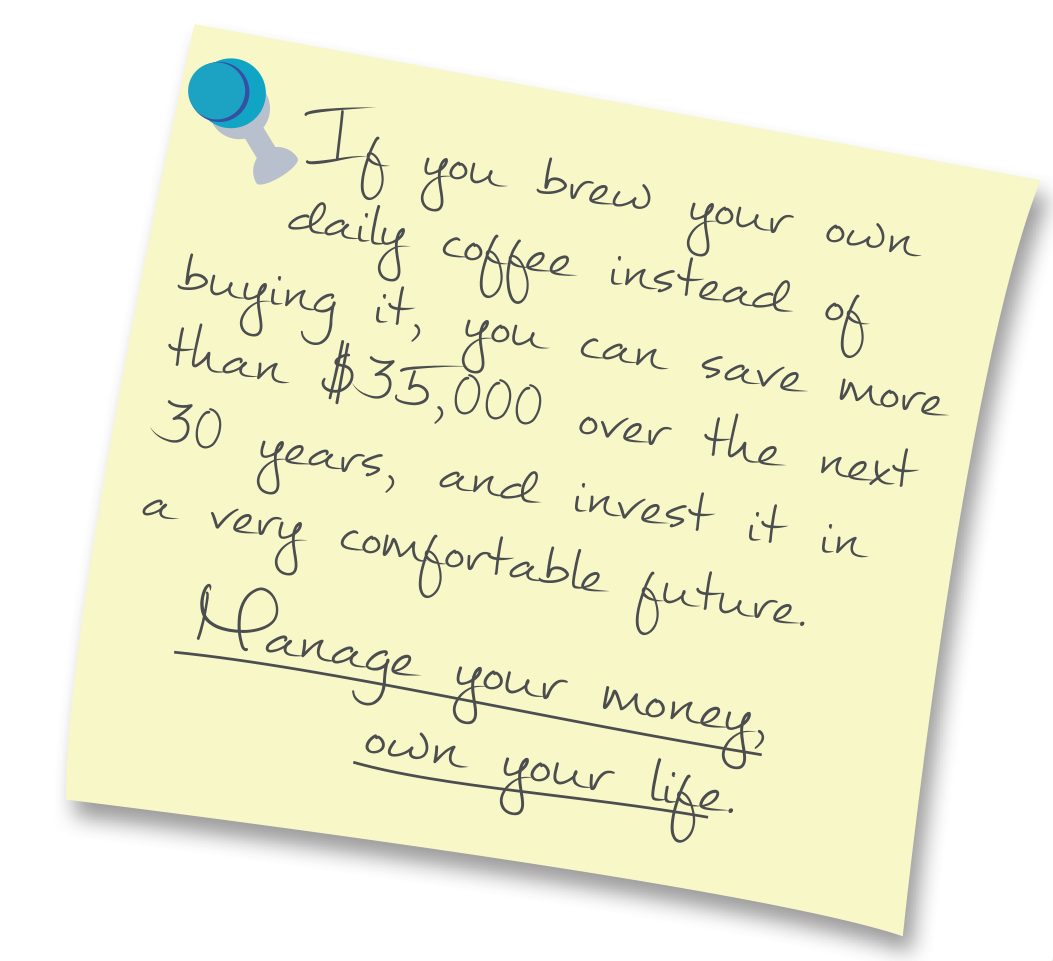 If you brew your own
daily coffee instead of
buying it, you can save more
than $35,000 over the next
30 years, and invest it in
a very comfortable future.
Manage your money,
own your life.